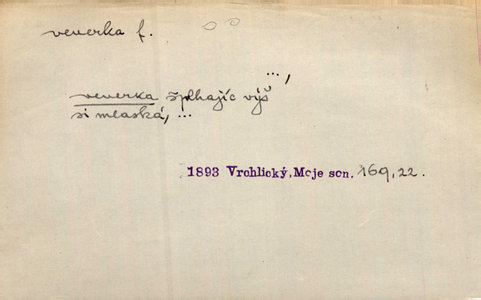 veverka f.
...,
veverka šplhajíc výš
si mlaská, ...
1893 Vrchlický, Moje son. 169, 22.